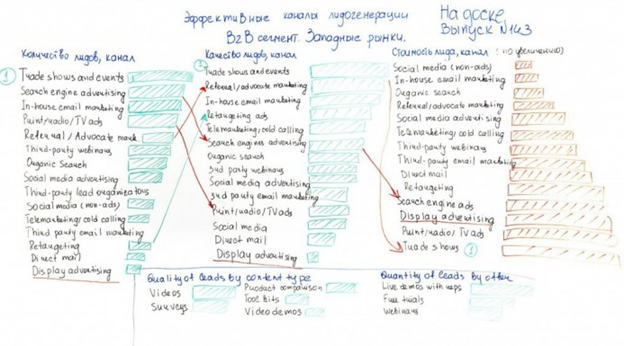 Эффективные каналы лидогенерации
На доске
B2B сегмент. Западные рынки.
Выпуск №143
Количество лидов, канал
Trade shows and events
Search engine advertising
In-house email marketing
Print/radio/TV ads
Referral/Advocate mark
Third-party webinars
Organic Search
Social media advertising
Third-party lead organizators
Social media (non-ads)
Telemarketing/cold calling
Third party email marketing
Retargeting
Direct mail
Display advertising
Качество лидов, канал
Trade shows and events
Referral/advocate marketing
In-house email marketing
Retargeting ads
Telemarketing/cold calling
Search engines advertising
Organic search
3rd party webinars
Social media advertising
3rd party email marketing
Print/radio/TV ads
Social media
Direct mail
Display advertising
Стоимость лида, канал (по увеличению)
Social media (non-aids)
In-house email marketing
Organic search
Referral/advocate marketing
Social media advertising
Telemarketing/cold calling
Third party webinars
Third party email marketing
Direct mail
Retargeting
Search engine ads
Display advertising
Print/radio/TV ads
Trade shows
1
1
Quality of leads by content type
Videos
Surveys
Product comparison
Tool kits
Video demos
Quantity of leads by offer
Live demos with reps
Free trials
Webinars